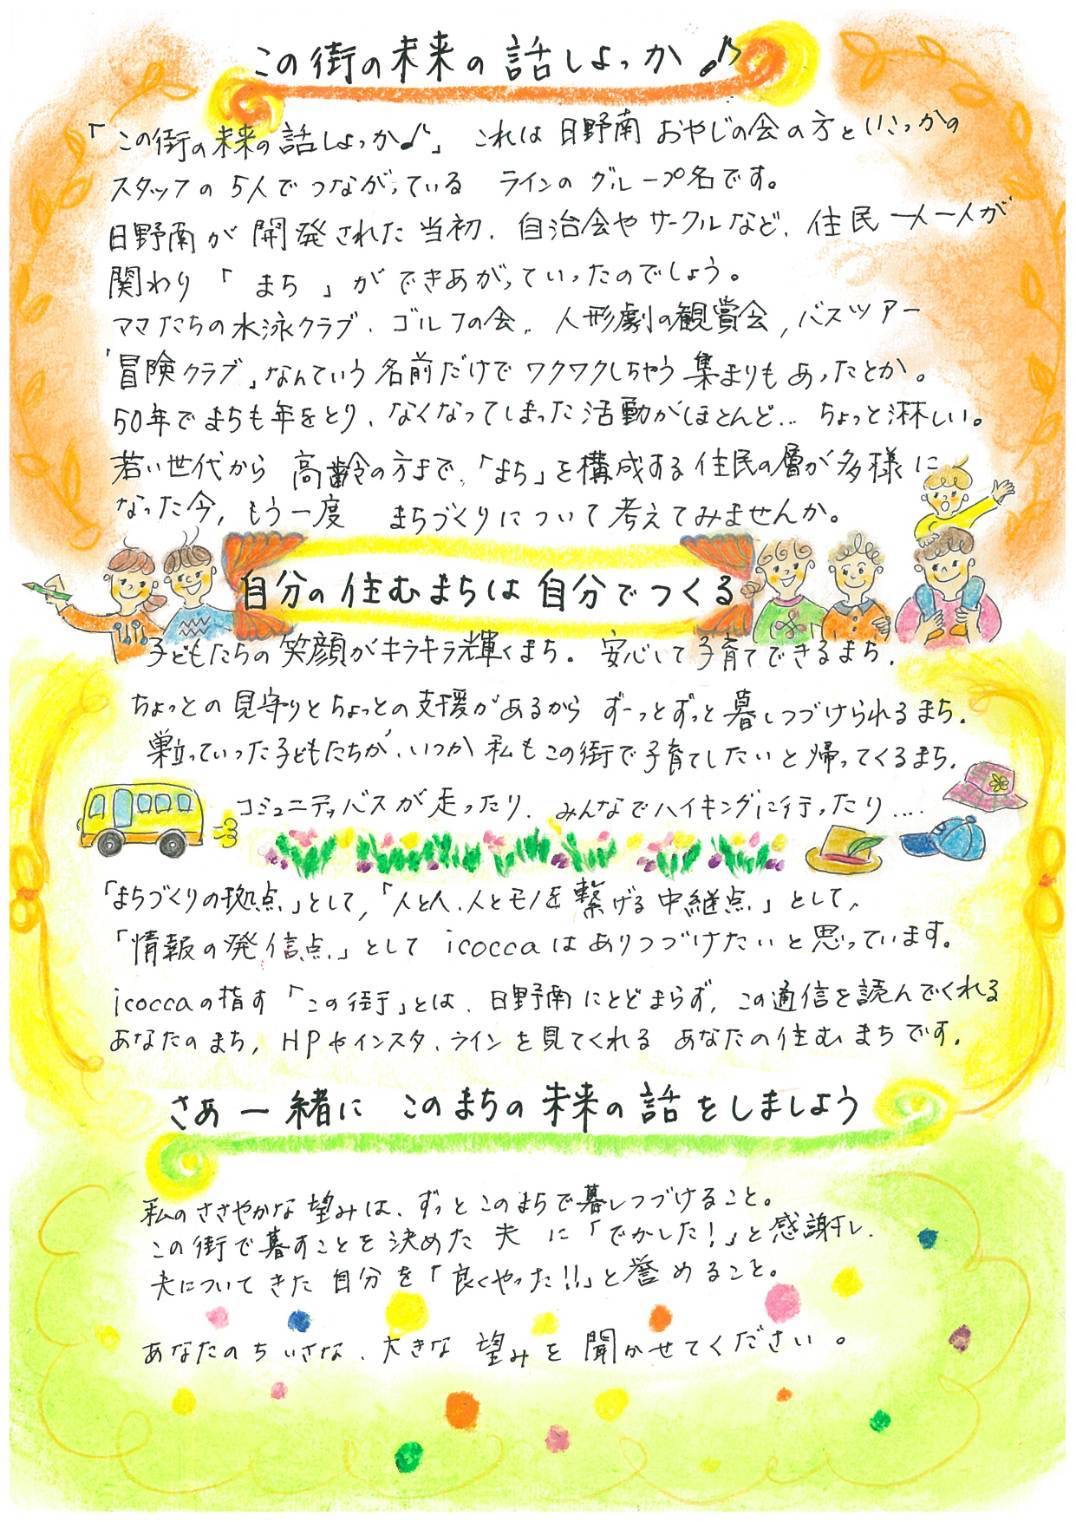 この街の未来の話しよっか♪
「この街の未来の話しよっか♪」 これは日野南おやじの会の方といこっかの
スタッフの5人でつながっている ラインのグループ名です。
日野南が開発された当初、自治会やサークルなど、住民一人一人が
関わり「まち」ができあがっていったのでしょう。
ママたちの水泳クラブ、ゴルフの会、人形劇の観賞会、バスツアー
「冒険クラブ」なんていう名前だけでワクワクしちゃう集まりもあったとか。
50年でまちも年をとり、なくなってしまった活動がほとんど… ちょっと淋しい。
若い世代から高齢の方まで、「まち」を構成する住民の層が多様に
なった今、もう一度 まちづくりについて考えてみませんか。
自分の住むまちは自分でつくる
子どもたちの笑顔がキラキラ輝くまち。安心して子育てできるまち。
ちょっとの見守りとちょっとの支援があるから ずーっとずっと暮しつづけられるまち。
巣立っていった子どもたちが、いつか私もこの街で子育てしたいと帰ってくるまち。
コミュニティバスが走ったり、みんなでハイキングに行ったり….
「まちづくりの拠点」として、「人と人、人とモノを繋げる中継点」として、
「情報の発信点」として icoccaはありつづけたいと思っています。
icoccaの指す「この街」とは、日野南にとどまらず、この通信を読んでくれる
あなたのまち、HPやインスタ、ラインを見てくれる あなたの住むまちです。
さあ 一緒に このまちの未来の話をしましょう
私のささやかな望みは、ずっとこのまちで暮しつづけること。
この街で暮すことを決めた夫に「でかした！」と感謝し、
夫についてきた自分を「良くやった!!」と誉めること。
あなたのちいさな、大きな望みを聞かせてください。